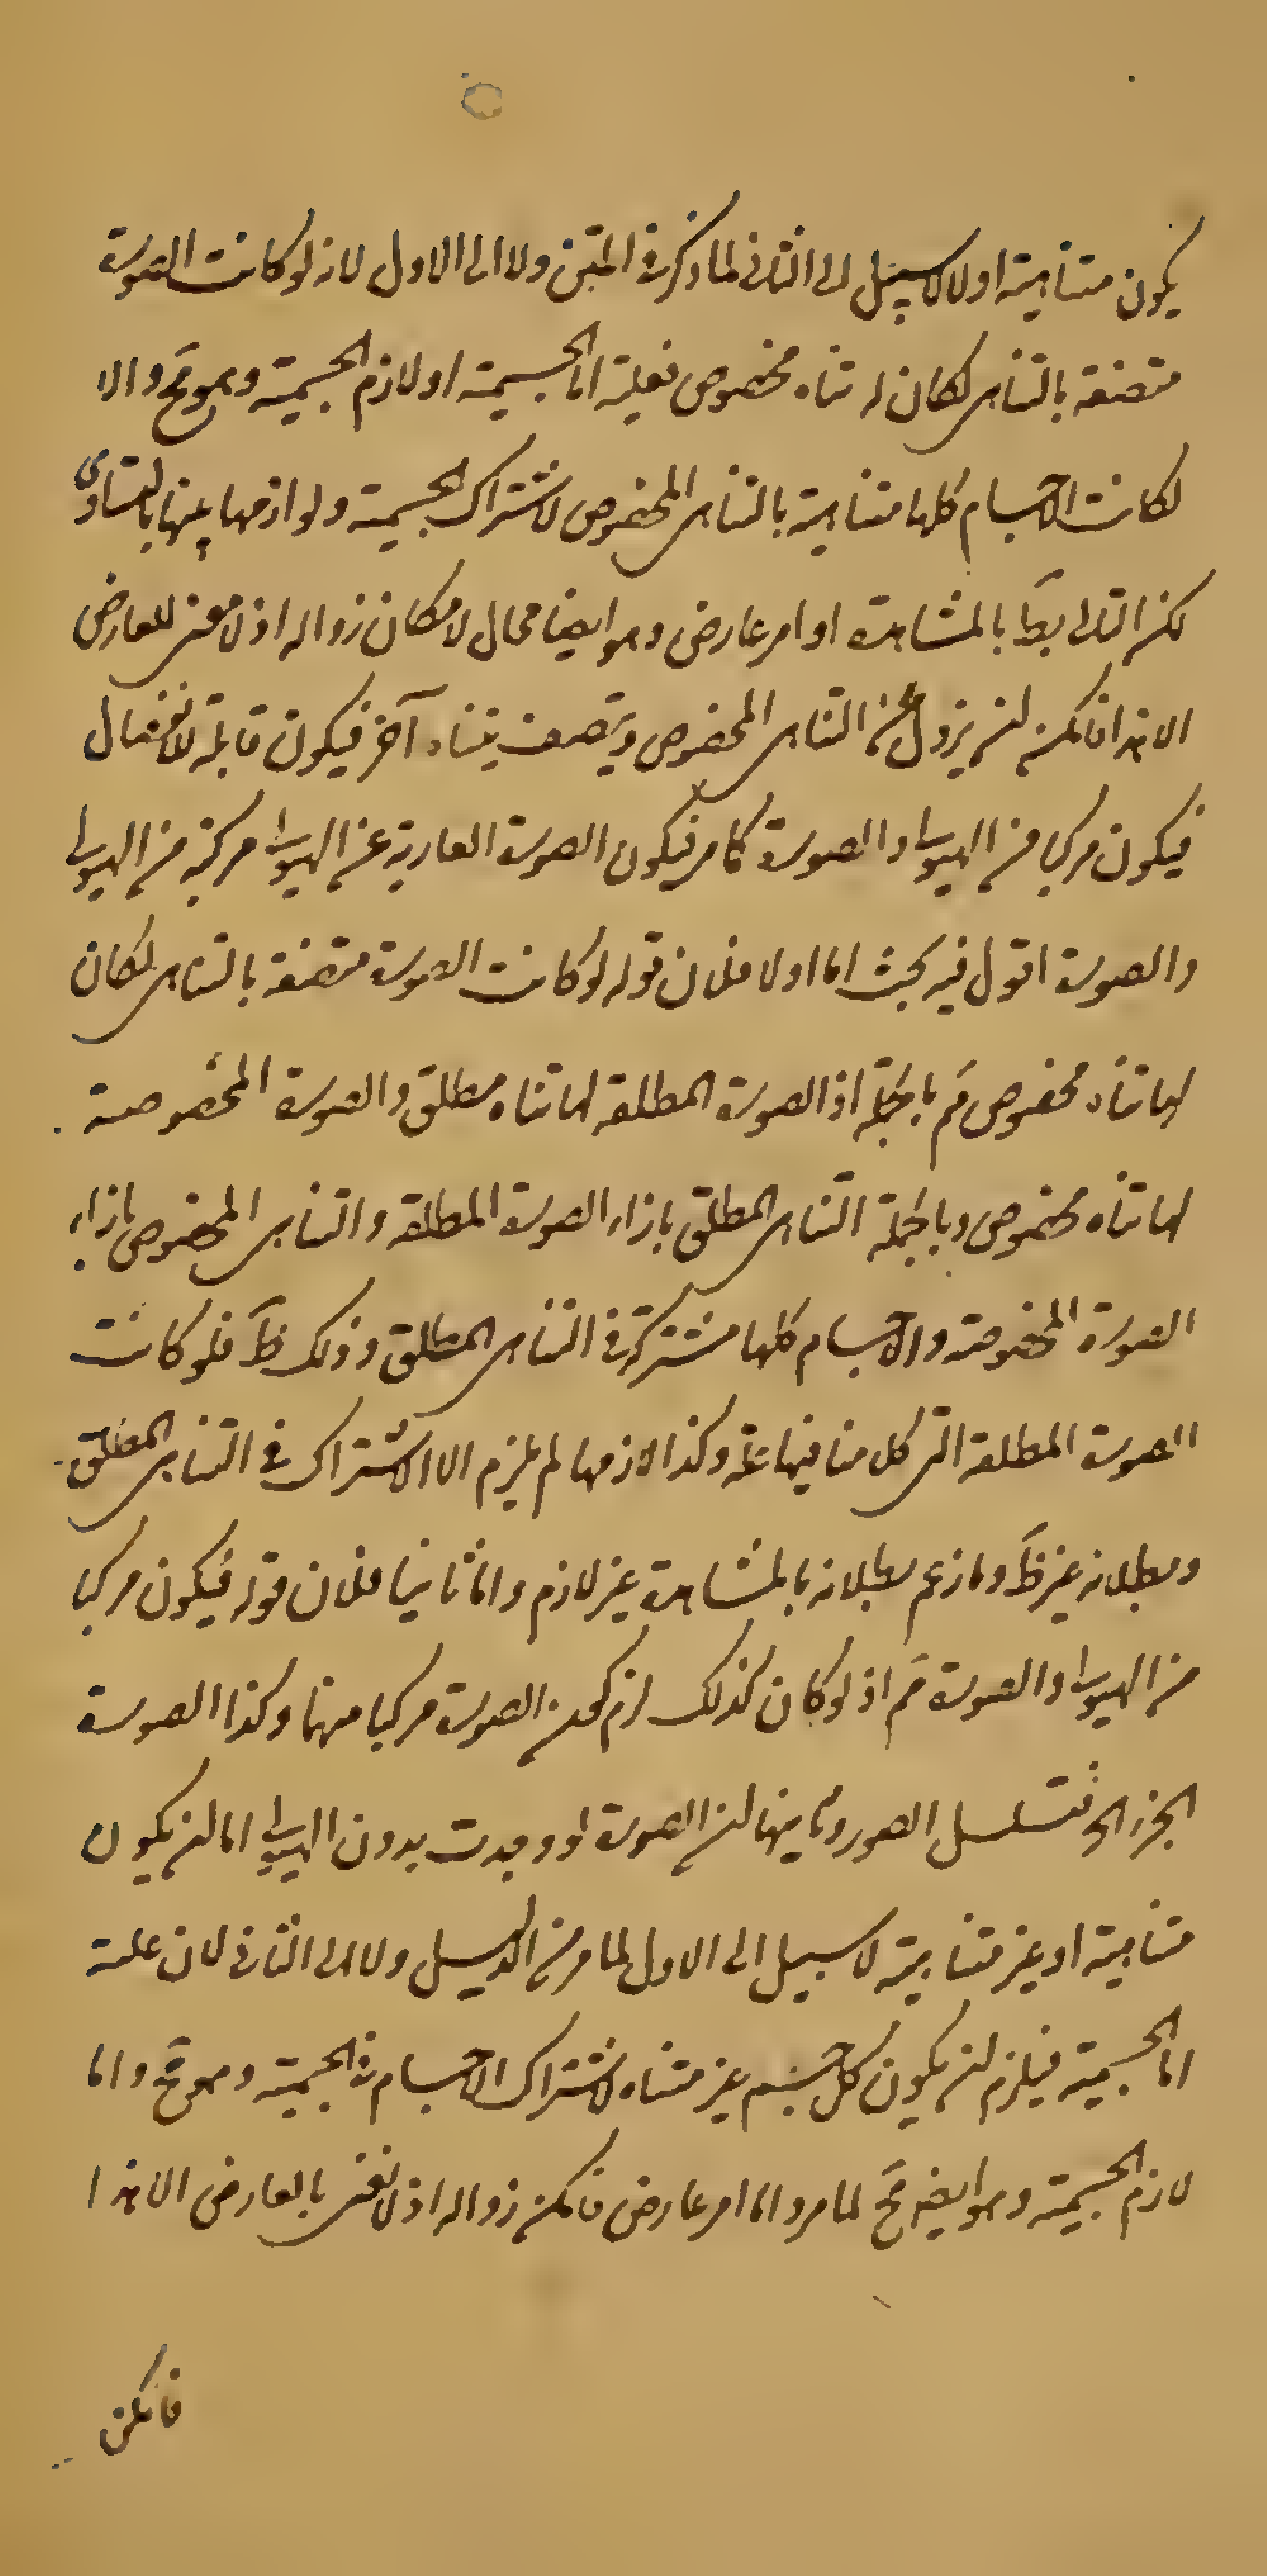 يكون متناهية اولا لا سبيل الى الثانى لما ذكر فى المتن ولا الى الاول لانه لو كانت الصورة
متصفة بالتناهى لكان له تناه مخصوص فعليته اما الجسمية او لازم الجسمية وهو مح والا
لكانت الاجسام كلها متناهية بالتناهى المخصوص لاشتراك الجسمية ولوازمها بينها بالتساوى
لكن التالى بط بالمشاهدة او امر عارض وهو ايضا محال لامكان زواله اذ لا معنى للعارض
الا هذا فامكن ان يزول عنه التناهى المخصوص ويتصف بتناه آخر فيكون قابلة للانفصال
فيكون مركبا من الهيولى والصورة كما مر فيكون الصورة العارية عن الهيولى مركبة من الهيولى
والصورة اقول فيه بحث اما اولا فلان قوله لو كانت الصورة متصفة بالتناهى لكان
لها تناه مخصوص مم بالجملة اذ الصورة المطلقة لها تناه مطلق والصورة المخصوصة
لها تناه مخصوص وبالجملة التناهى المطلق بازاء الصورة المطلقة والتناهى المخصوص بازاء
الصورة المخصوصة والاجسام كلها مشتركة فى التناهى المطلق وذلك ظ فلو كانت
الصورة المطلقة التى كلامنا فيها علة وكذا لازمها لم يلزم الا الاشتراك فى التناهى المطلق
وبطلانه غير ظ وما زعم بطلانه بالمشاهدة غير لازم واما ثانيا فلان قوله فيكون مركبا
من الهيولى والصورة مم اذ لو كان كذلك لزم كون الصورة مركبا منهما وكذا الصورة
الجزء الخ فتسلسل الصور ومما بينها ان الصورة لو وجدت بدون الهيولى اما ان يكون
متناهية او غير متناهية لا سبيل الى الاول لما مر من الدليل ولا الى الثانى لان علته
اما الجسمية فيلزم ان يكون كل جسم غير متناه لاشتراك الاجسام فى الجسمية وهو مح واما
لازم الجسمية وهو ايضا مح لما مر واما امر عارض فامكن زواله اذ لا نعنى بالعارض الا هذا
فامكن